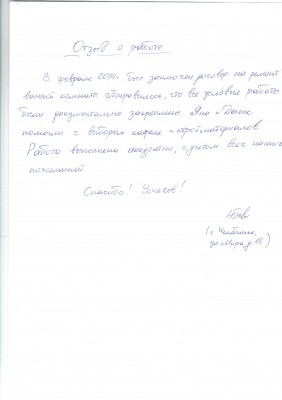 Отзыв о работе
В феврале 2014г. был заключен договор на ремонт
ванной комнаты. Понравилось, что все условия работы
были документально закреплены. Яна и Денис
помогли с выбором кафеля и стройматериалов.
Работа выполнена аккуратно, с учетом всех наших
пожеланий.
Спасибо! Успехов!
(г. Челябинск,
ул. Мира д. 15)